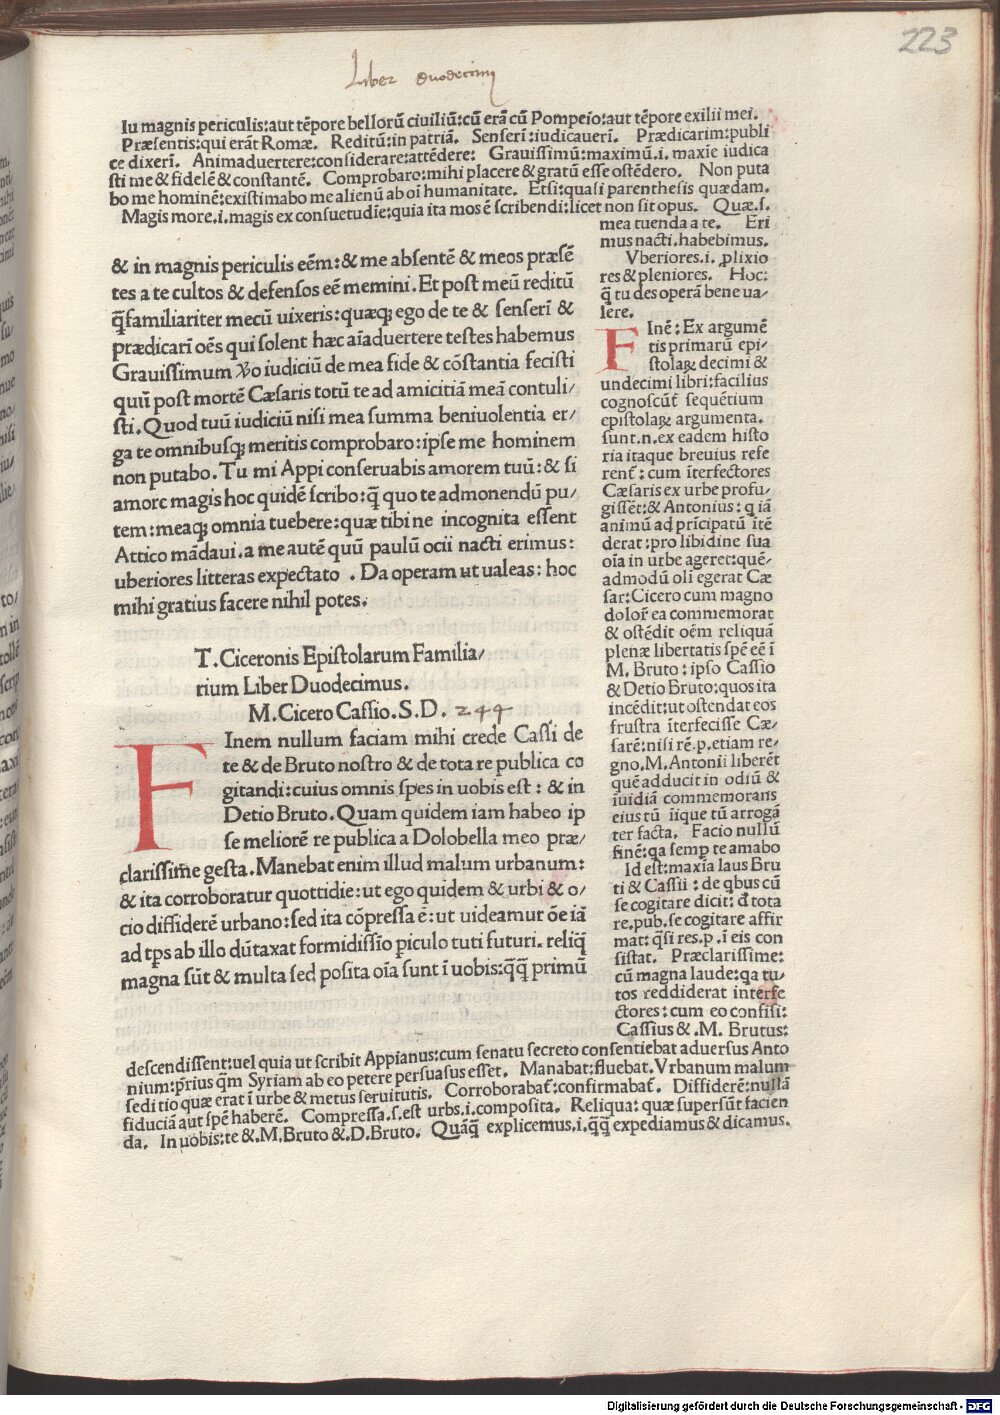 223
Liber duodecimus
Iu magnis periculis:aut tēpore bellorū ciuiliū:cū erā cū Pompeio:aut tēpore exilii mei.
Præsentis:qui erāt Romæ. Reditū:in patriā. Senserī:iudicauerī. Prædicarim:publi
ce dixerī. Animaduertere:considerare:attēdere: Grauissimū:maximū.i.maxīe iudica
sti me & fidelē & constantē. Comprobaro:mihi placere & gratū esse ostēdero. Non puta
bo me hominē:existimabo me alienū ab oī humanitate. Etsi:quasi parenthesis quædam.
Magis more.i.magis ex consuetudīe:quia ita mos ē scribendi:licet non sit opus. Quæ.s.
& in magnis periculis eēm:& me absentē & meos præsē
tes a te cultos & defensos eē memini.Et post meū reditū
q̄ familiariter mecū uixeris:quæq; ego de te & senserī &
prædicarī oēs qui solent hæc aīaduertere testes habemus
Grauissimum ꝟo iudiciū de mea fide & cōstantia fecisti
quū post mortē Cæsaris totū te ad amicitiā meā contuli/
sti.Quod tuū iudiciū nisi mea summa beniuolentia er/
ga te omnibusq; meritis comprobaro:ipse me hominem
non putabo.Tu mi Appi conseruabis amorem tuū:& si
amore magis hoc quidē scribo:q̄ quo te admonendū pu/
tem:meaq; omnia tuebere:quæ tibi ne incognita essent
Attico mādaui.a me autē quū paulū ocii nacti erimus:
uberiores litteras expectato . Da operam ut ualeas: hoc
mihi gratius facere nihil potes.
T.Ciceronis Epistolarum Familia/
rium Liber Duodecimus.
M.Cicero Cassio.S.D. 244
FInem nullum faciam mihi crede Cassi de
te & de Bruto nostro & de tota re publica co
gitandi:cuius omnis spes in uobis est : & in
Detio Bruto.Quam quidem iam habeo ip
se meliorē re publica a Dolobella meo præ/
clarissime gesta.Manebat enim illud malum urbanum:
& ita corroboratur quottidie:ut ego quidem & urbi & o/
cio diffiderē urbano:sed ita cōpressa ē:ut uideamur ōe iā
ad tp̄s ab illo dūtaxat formidissīo piculo tuti futuri.reliq̄
magna sūt & multa sed posita oīa sunt ī uobis:q̄q̄ primū
mea tuenda a te. Eri
mus nacti.habebimus.
Vberiores.i. plixio
res & pleniores. Hoc:
q̄ tu des operā bene ua/
lere.
FInē:Ex argumē
tis primarū epi/
stolaꝝ decimi &
undecimi libri:facilius
cognoscūt sequētium
epistolaꝝ argumenta.
sunt.n.ex eadem histo
ria itaque breuius refe
rent: cum īterfectores
Cæsaris ex urbe profu/
gissēt:& Antonius:q iā
animū ad prīcipatū ītē
derat:pro libidine sua
oīa in urbe ageret:quē/
admodū oli egerat Cæ
sar:Cicero cum magno
dolorꝭ ea commemorat
& ostēdit oēm reliquā
plenæ libertatis spē eē ī
M.Bruto:ipso Cassio
& Detio Bruto:quos ita
incēdit:ut ostendat eos
frustra īterfecisse Cæ/
sarē:nisi rē.p.etiam re/
gno.M.Antonii liberēt
quē adducit in odiū &
īuidiā commemorans
eius tū īique tū arrogā
ter facta. Facio nullū
finē:qa semp te amabo
Id est:maxīa laus Bru
ti & Cassii : de qbus cū
se cogitare dicit: d tota
re.pub.se cogitare affir
mat:q̄si res.p.ī eis con
sistat. Præclarissime:
cū magna laude:qa tu/
tos reddiderat interfe
ctores:cum eo confisi:
Cassius & .M. Brutus:
descendissent:uel quia ut scribit Appianus:cum senatu secreto consentiebat aduersus Anto
nium:prius q̄m Syriam ab eo petere persuasus esset. Manabat:fluebat.Vrbanum malum
seditio quæ erat ī urbe & metus seruitutis. Corroborabat:confirmabat. Diffiderē:nullā
fiduciā aut spē haberē. Compressa.s.est urbs.i.composita. Reliqua:quæ supersūt facien
da. In uobis:te &.M.Bruto &.D.Bruto. Quāq̄ explicemus.i.q̄q̄ expediamus & dicamus.
Digitalisierung gefördert durch die Deutsche Forschungsgemeinschaft - DFG